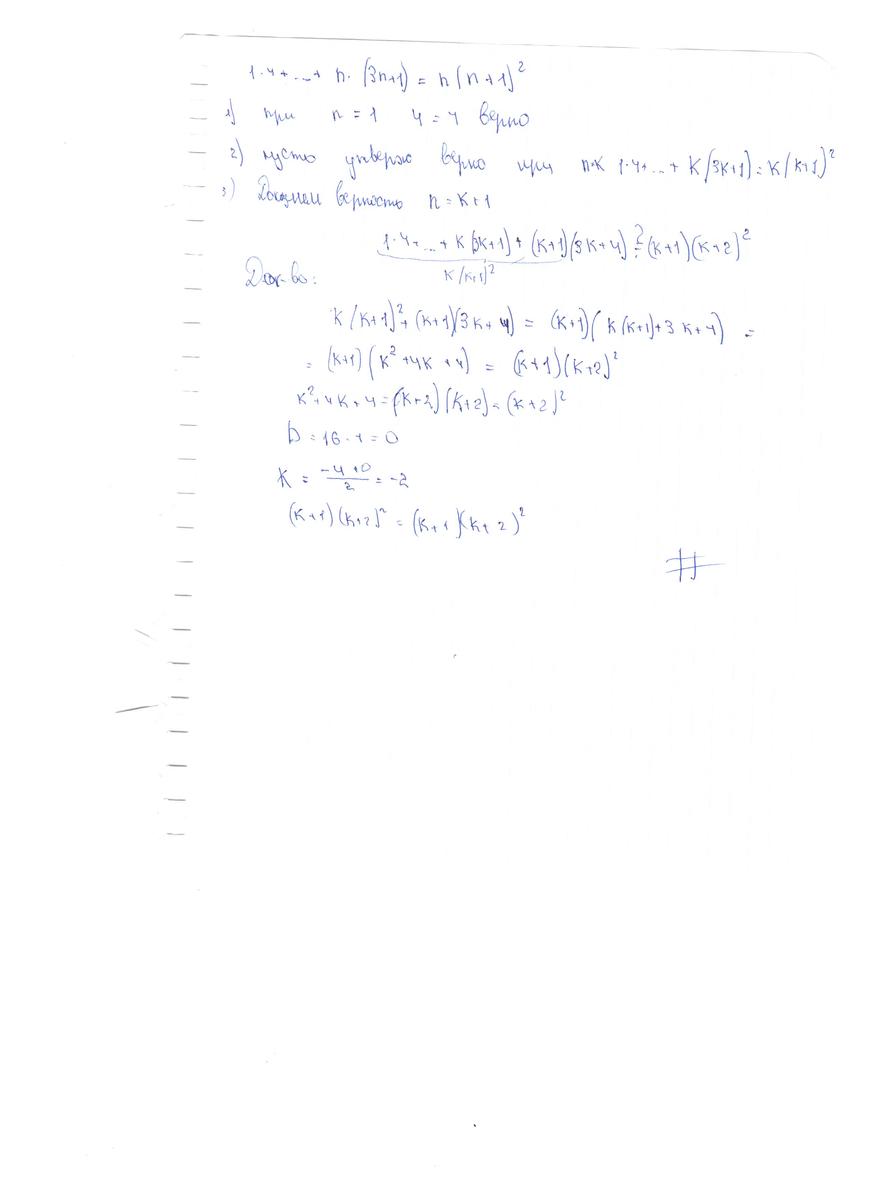 1·4+...+ n·(3n+1) = n(n+1)²
1) при n = 1 4 = 4 верно
2) пусть утверж верно при n=K 1·4+...+ K(3K+1) = K(K+1)²
3) Докажем верность n = K+1
1·4+...+ K(3K+1) + (K+1)(3K+4) ?= (K+1)(K+2)²
K(K+1)²
Док-во:
K(K+1)² + (K+1)(3K+4) = (K+1)(K(K+1)+3K+4) =
= (K+1)(K²+4K+4) = (K+1)(K+2)²
K²+4K+4 = (K+2)(K+2) = (K+2)²
K = \frac{-4+0}{2} = -2
(K+1)(K+2)² = (K+1)(K+2)²
#